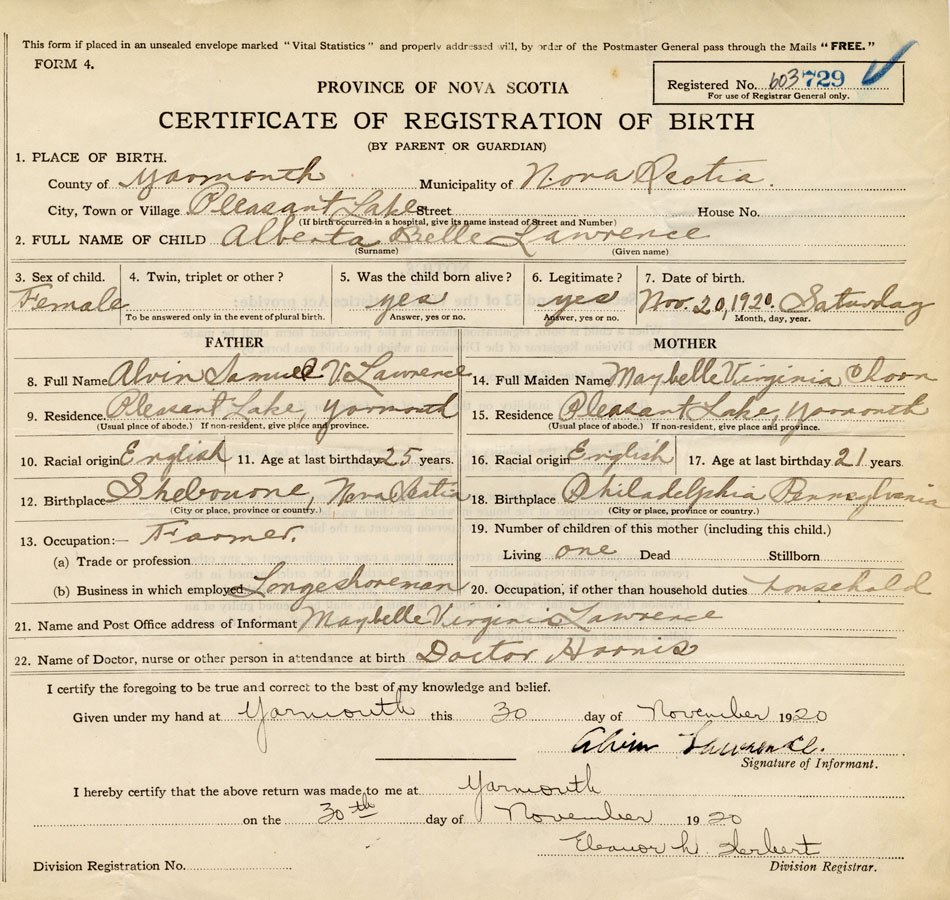 This form if placed in an unsealed envelope marked "Vital Statistics" and properly addressed will, by order of the Postmaster General pass through the Mails "FREE."
FORM 4.
Registered No. 603729
For use of Registrar General only.
PROVINCE OF NOVA SCOTIA
CERTIFICATE OF REGISTRATION OF BIRTH
(BY PARENT OR GUARDIAN)
1. PLACE OF BIRTH.
County of Yarmouth Municipality of Nova Scotia.
City, Town or Village Pleasant Lake Street House No.
(If birth occurred in a hospital, give its name instead of Street and Number)
2. FULL NAME OF CHILD Alberta Belle Lawrence
(Surname) (Given name)
3. Sex of child. 4. Twin, triplet or other? 5. Was the child born alive? 6. Legitimate? 7. Date of birth.
Female yes yes Nov. 20, 1920 Saturday
To be answered only in the event of plural birth. Answer, yes or no. Answer, yes or no. Month, day, year.
FATHER MOTHER
8. Full Name Alvin Samuel V. Lawrence 14. Full Maiden Name Maybelle Virginia
9. Residence. Pleasant Lake, Yarmouth 15. Residence Pleasant Lake, Yarmouth
(Usual place of abode.) If non-resident, give place and province. (Usual place of abode.) If non-resident, give place and province.
10. Racial origin English 11. Age at last birthday 25 years. 16. Racial origin English 17. Age at last birthday 21 years
12. Birthplace Shebourne, Nova Scotia 18. Birthplace Philadelphia Pennsylvania
(City or place, province or country.) (City or place, province or country.)
13. Occupation:— Farmer. 19. Number of children of this mother (including this child.)
(a) Trade or profession Living one Dead Stillborn
(b) Business in which employed Longeshoreman 20. Occupation, if other than household duties household
21. Name and Post Office address of Informant Maybelle Virginia Lawrence
22. Name of Doctor, nurse or other person in attendance at birth Doctor
I certify the foregoing to be true and correct to the best of my knowledge and belief.
Given under my hand at Yarmouth this 30 day of November 1920
Alvin Lawrence.
Signature of Informant.
I hereby certify that the above return was made to me at Yarmouth
on the 30th day of November 1920
Eleanor h. Herbert
Division Registration No. Division Registrar.